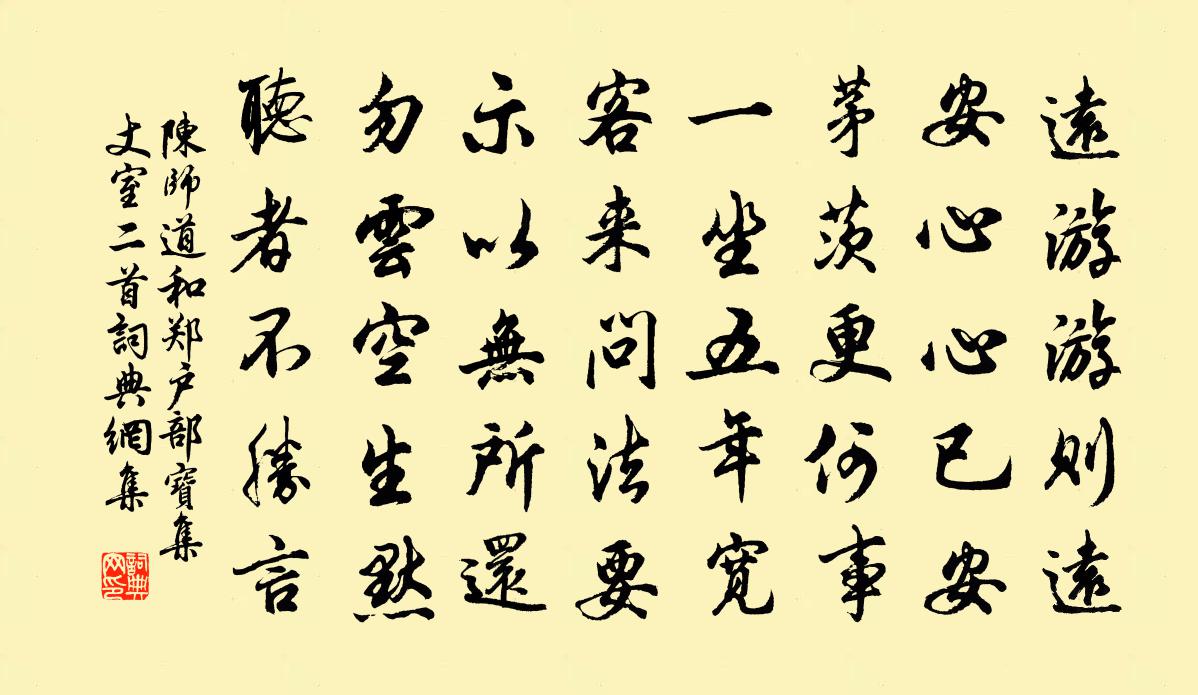 遠游游則遠
安心心已安
茅茨更何事
一坐五年寬
客来問法要
示以無所還
勿雲空生默
聽者不勝言
陳師道和郑户部寶集
丈室二首詞典網集
詞典網印